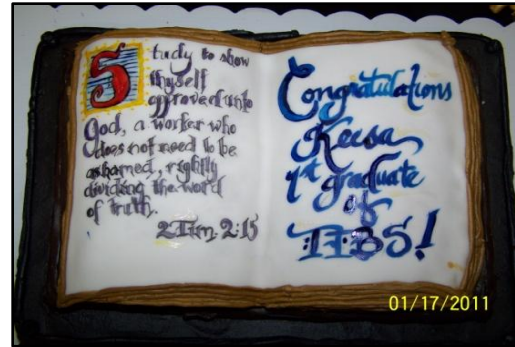 Study to show
thyself
approved unto
God, a worker who
does not need to be
ashamed, rightly
dividing the word
of truth.
2 Tim. 2:15
Congratulations
Keesa
1st graduate
of
I.T.B.S!
01/17/2011